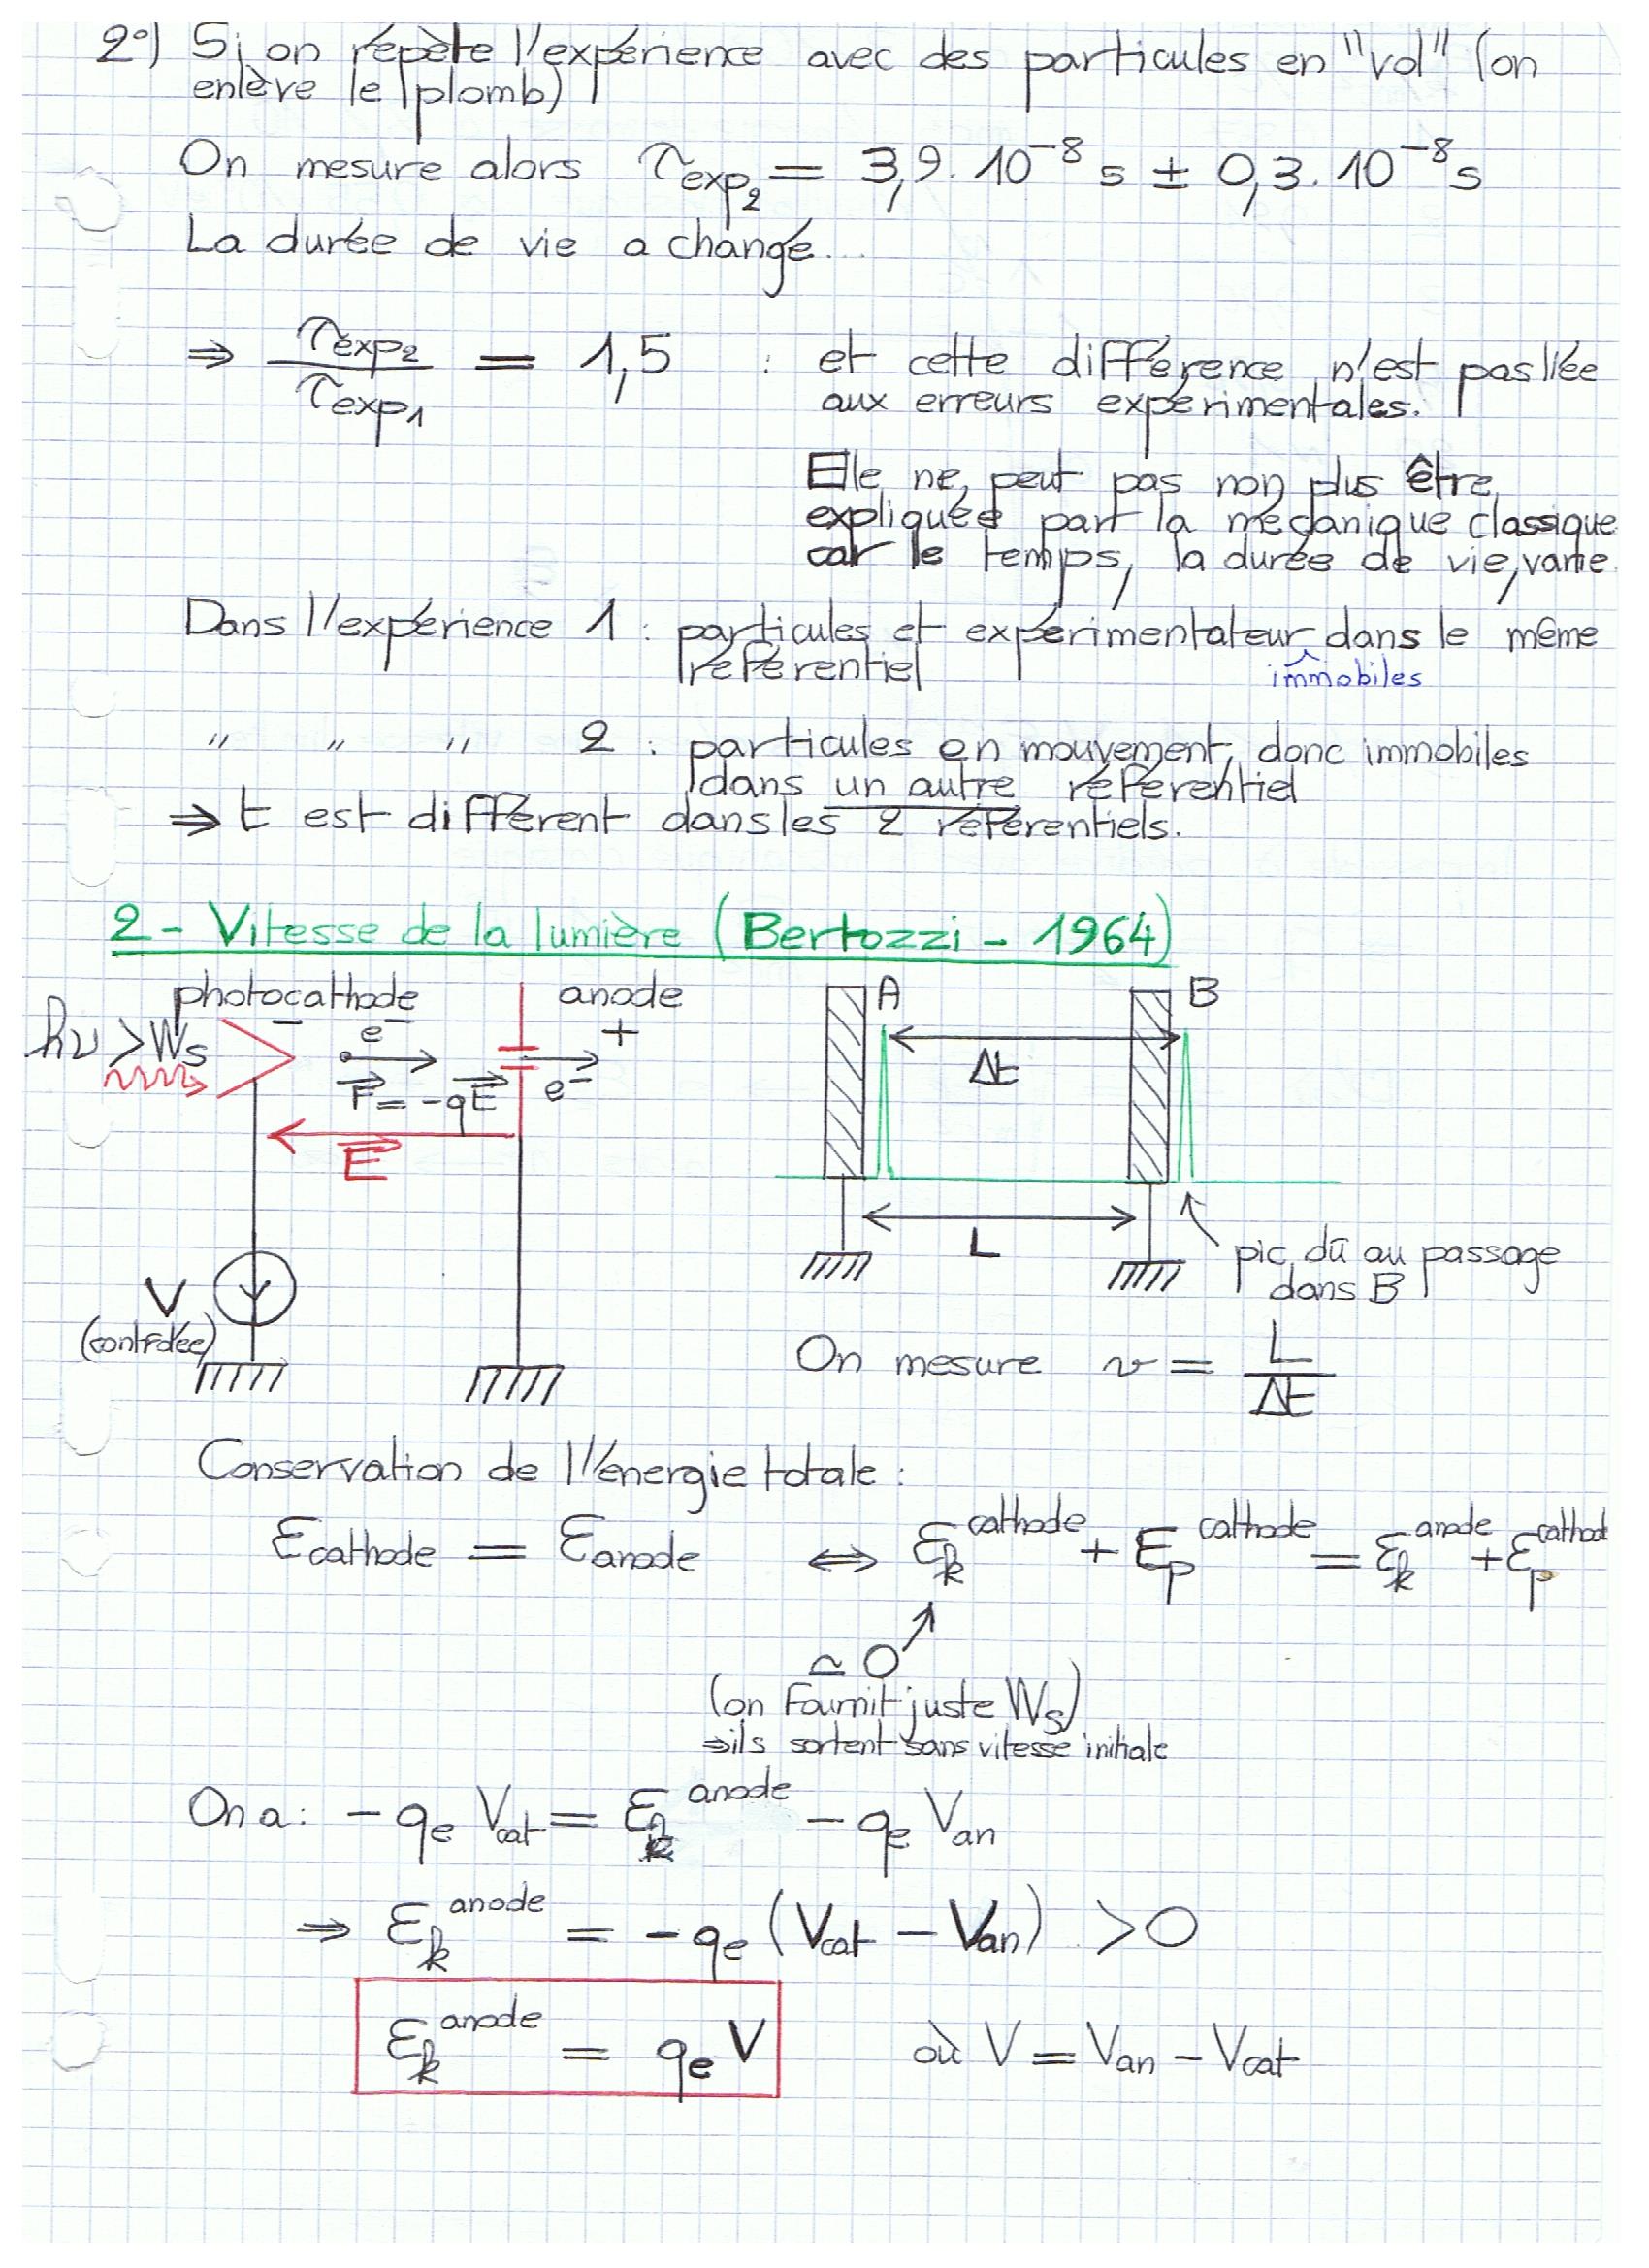 2°) Si on répète l'expérience avec des particules en "vol" (on
enlève le plomb)
On mesure alors τexp2 = 3,9.10⁻⁸ s ± 0,3.10⁻⁸ s
La durée de vie a changé...
⇒ τexp2 / τexp1 = 1,5 : et cette différence n'est pas liée
aux erreurs expérimentales.
Elle ne peut pas non plus être
expliquée part la mécanique classique
car le temps, la durée de vie, varie.
Dans l'expérience 1 : particules et expérimentateur dans le même
référentiel
immobiles
" " " 2 : particules en mouvement, donc immobiles
dans un autre référentiel
⇒ t est différent dans les 2 référentiels.
2 - Vitesse de la lumière (Bertozzi - 1964)
photocathode
anode
A
B
hν > Ws
-
e⁻
+
Δt
F = -qE
e⁻
E
L
pic dû au passage
dans B
V
(contrôlée)
On mesure v = L / Δt
Conservation de l'énergie totale :
Ecathode = Eanode ⇔ Ek^cathode + Ep^cathode = Ek^anode + Ep^cathode
≃ 0
(on fournit juste Ws)
⇒ ils sortent sans vitesse initiale
On a : - qe Vcat = Ek^anode - qe Van
⇒ Ek^anode = - qe (Vcat - Van) > 0
Ek^anode = qe V où V = Van - Vcat